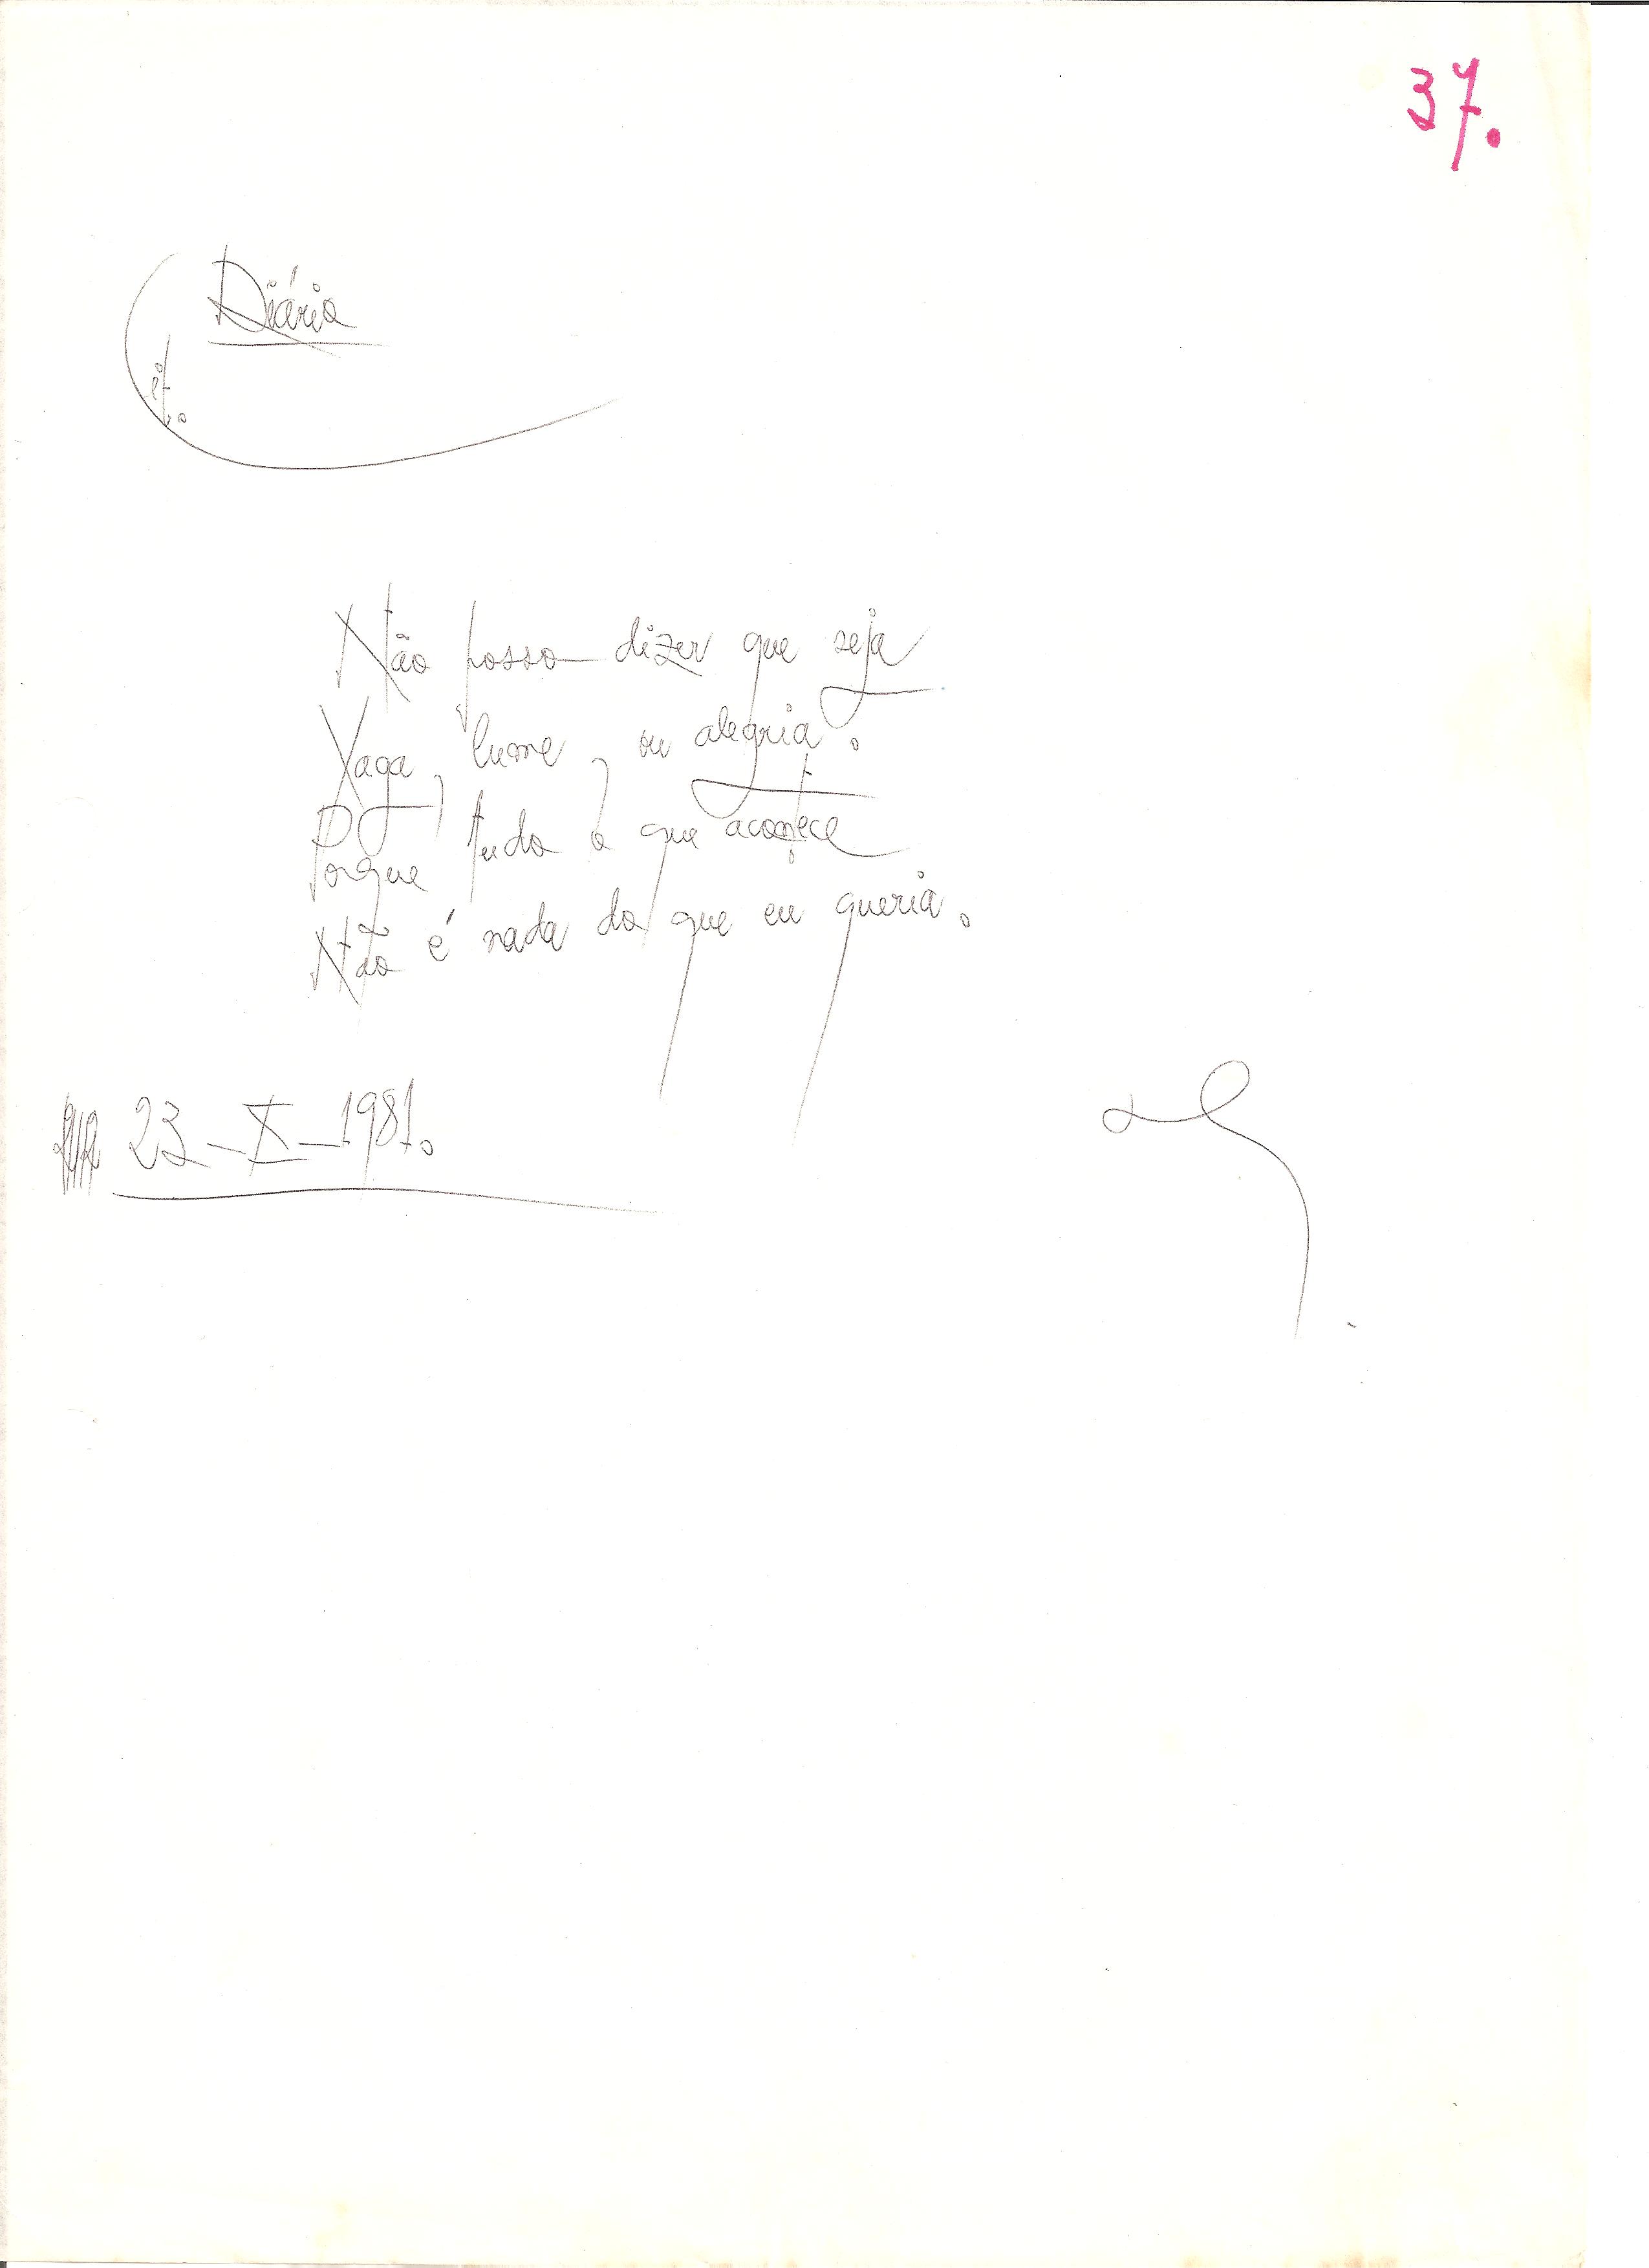 37.
Diário
Não posso dizer que seja
Xaga, lume, ou alegria.
Porque tudo o que acontece
Não é nada do que eu queria.
23-X-1981.